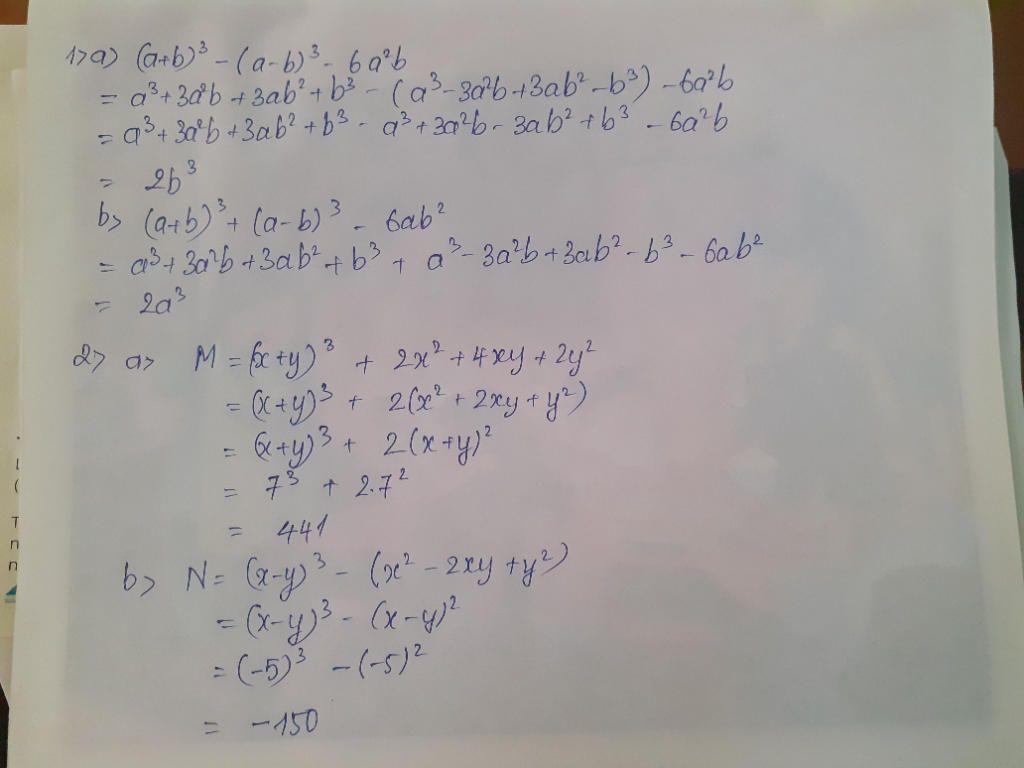 1> a) (a+b)³ - (a-b)³ - 6a²b
= a³+3a²b+3ab²+b³ - (a³-3a²b+3ab²-b³) - 6a²b
= a³+3a²b+3ab²+b³ - a³+3a²b-3ab²+b³ - 6a²b
= 2b³
b> (a+b)³+(a-b)³ - 6ab²
= a³+3a²b+3ab²+b³ + a³-3a²b+3ab²-b³-6ab²
= 2a³
2> a> M = (x+y)³ + 2x²+4xy+2y²
= (x+y)³ + 2(x²+2xy+y²)
= (x+y)³ + 2(x+y)²
= 7³ + 2.7²
= 441
b> N = (x-y)³ - (x²-2xy+y²)
= (x-y)³ - (x-y)²
= (-5)³ - (-5)²
= -150